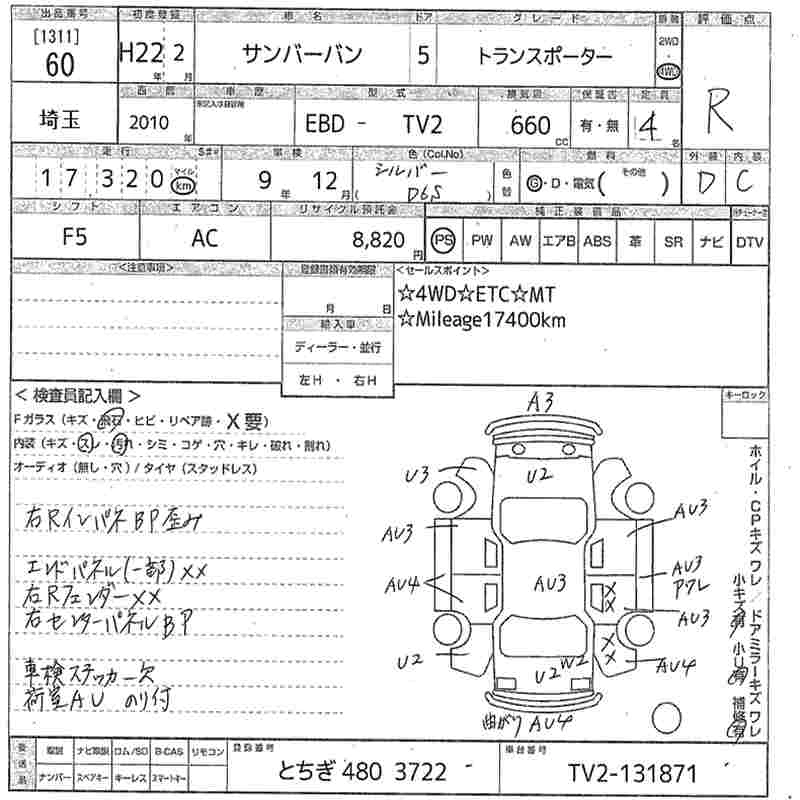 出品番号 初度登録 車名 ドア グレード 駆動 評価点
[1311]
60 H22 年 2 月 サンバーバン 5 トランスポーター 2WD 4WD R
西暦 車歴 型式 排気量 保証書 定員
埼玉 2010 年 EBD - TV2 660 cc 有・無 4 名
走行 S#* 車検 色 (Col.No) 燃料 外装 内装
17,320 マイル km 9 年 12 月 シルバー ( D6S ) 色替 G・D・電気 ( その他 ) D C
シフト エアコン リサイクル預託金 純正装備品
F5 AC 8,820 円 PS PW AW エアB ABS 革 SR ナビ DTV
<注意事項> 登録書類有効期限 <セールスポイント>
月 日 ☆4WD☆ETC☆MT
輸入車 ☆Mileage17400km
ディーラー・並行
左H ・ 右H
<検査員記入欄> キーロック
Fガラス (キズ・飛石・ヒビ・リペア跡・X要)
内装 (キズ・スレ・汚れ・シミ・コゲ・穴・キレ・破れ・割れ)
オーディオ (無し・穴) / タイヤ (スタッドレス)
右Rインパネ BP歪み
エンドパネル(一部)XX
右Rフェンダー XX
右センターパネルBP
車検ステッカー欠
荷室AU のり付
A3
U2
U3
AU3
AU3
AU4
AU3
AU3
アワレ
XX
AU3
XX
U2
U2
W2
AU4
曲がり AU4
ホイル・CPキズ ワレ / ドアミラーキズ ワレ
小キズ有 小U有 補修有
後送品 取説 ナビ取説 ロム/SD B-CAS リモコン 登録番号 車台番号
ナンバー スペアキー キーレス スマートキー とちぎ 480 3722 TV2-131871